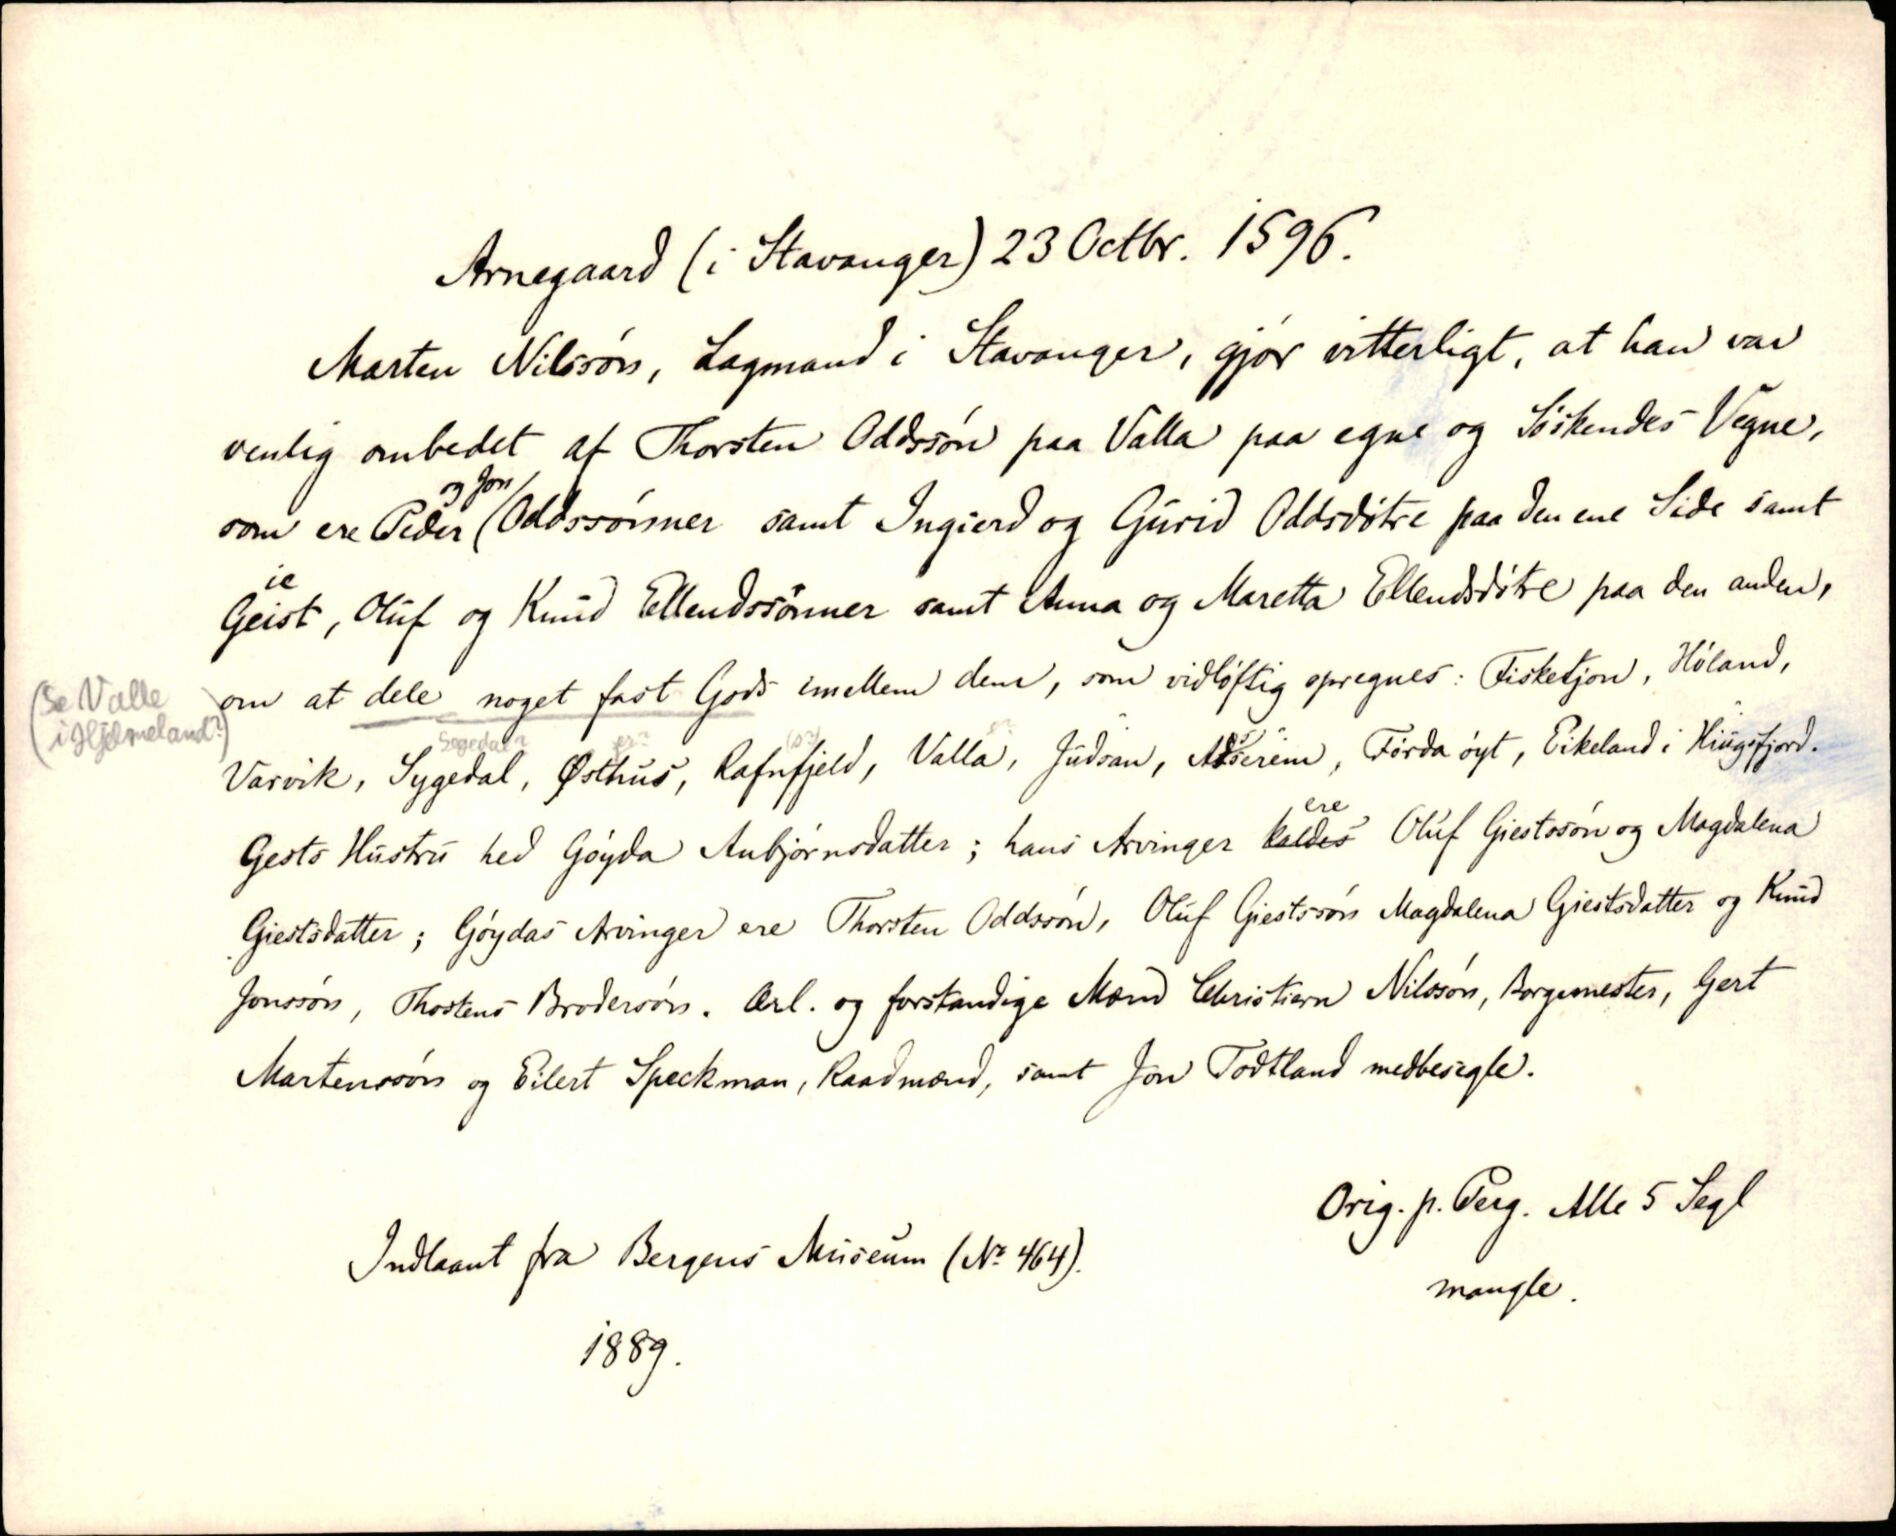 Arnegaard (i Stavanger) 23 Octbr. 1596.
Marten Nilssøn, Lagmand i Stavanger, gjør vitterligt, at han var
venlig ombedet af Thorsten Oddssøn paa Valla paa egne og Söskendes Vegne,
og Jon
som ere Peder (Oddssønner samt Ingierd og Gurid Oddsdøtre paa den ene Side samt
ie
Geist, Oluf og Knud Ellendssønner samt Anna og Maretta Ellendsdøtre paa den anden,
(Se Valle
i Hjelmeland?)
om at dele noget fast Gods imellem dem, som vidløftig opregnes: Fisketjon, Høland,
Segedal?
Varvik, Sygedal, Østhus, Rafnfjeld, Valla, Judsan, Adserem, Førda øyt, Eikeland i Hiugsfjord.
ere
Gests Hustru hed Gøyda Anbjørnsdatter; hans Arvinger kaldes Oluf Giestssøn og Magdalena
Giestsdatter; Gøydas Arvinger ere Thorsten Oddssøn, Oluf Giestssøn Magdalena Giestsdatter og Knud
Jonssøn, Thostens Brodersøn. Ærl. og forstandige Mænd Christiern Nilssøn, Borgemester, Gert
Martenssøn og Eilert Speckman, Raadmænd, samt Jon Todtland medbesegle.
Orig. p. Perg. Alle 5 Segl
mangle.
Indlaant fra Bergens Museum (No 464).
1889.